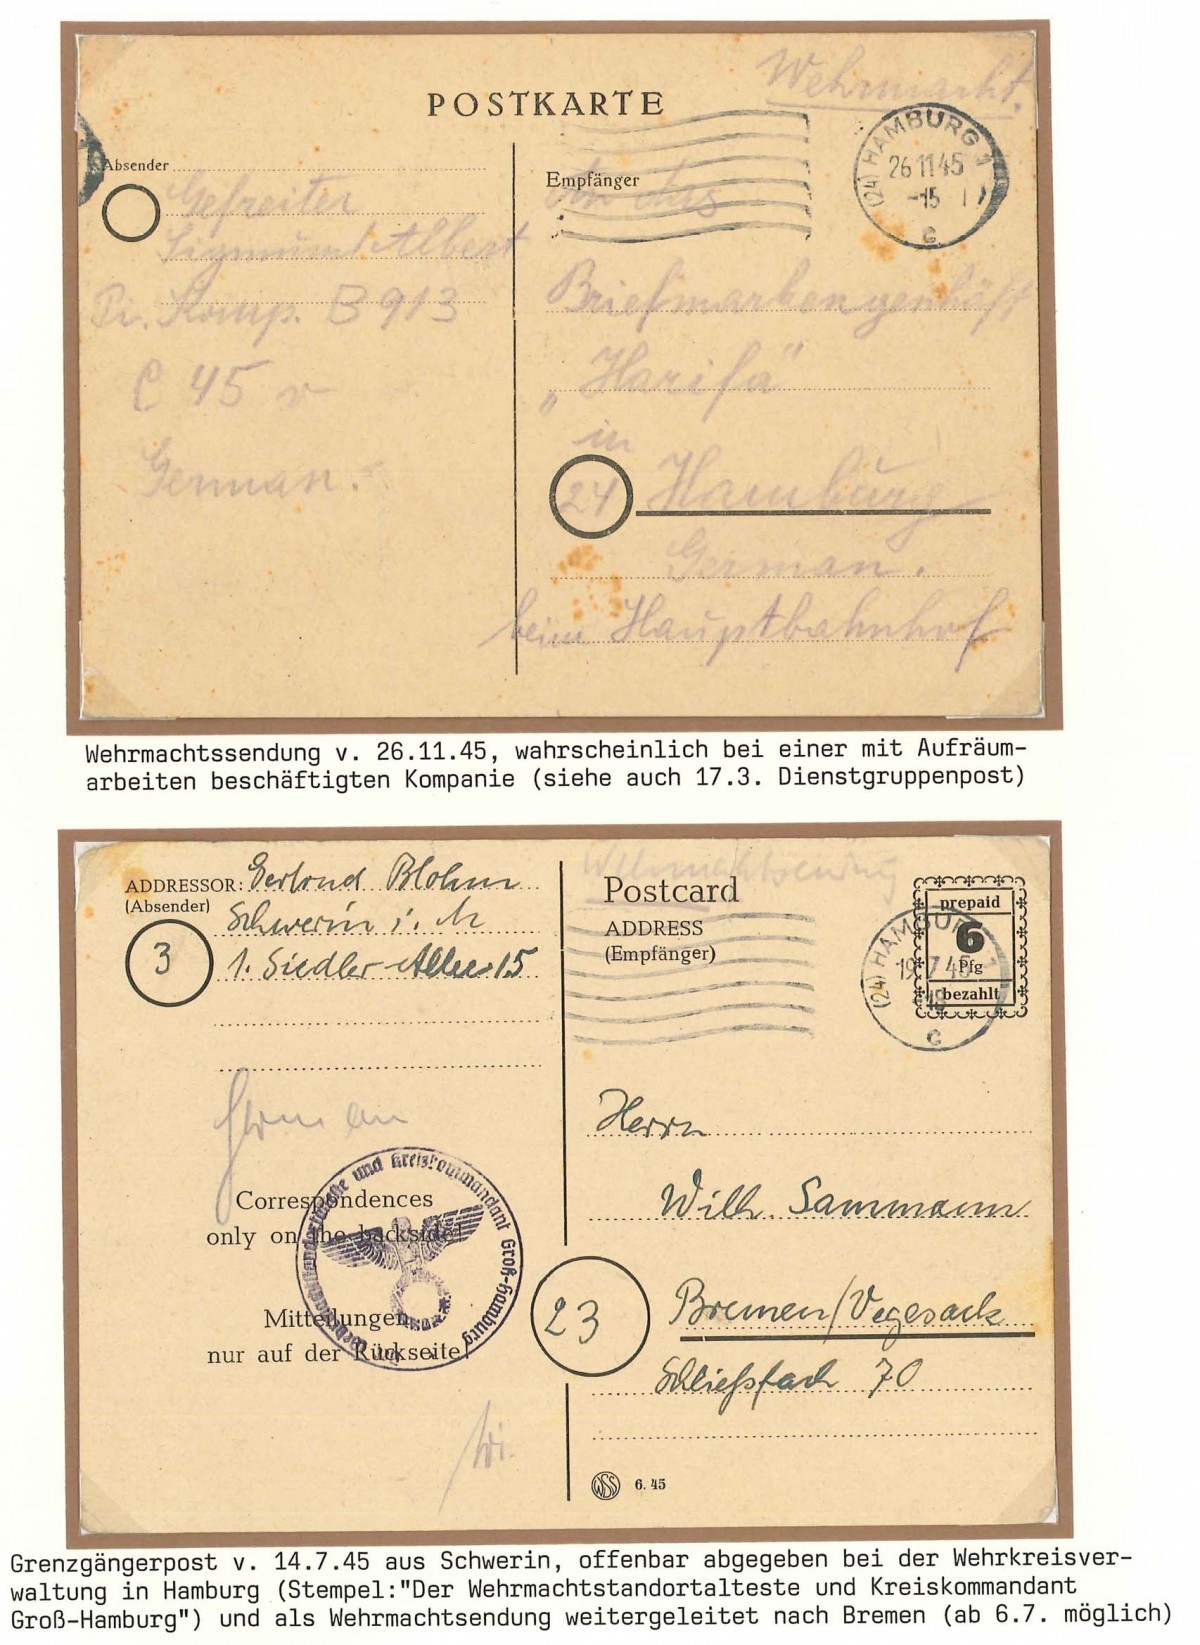 Wehrmacht.
POSTKARTE
(24) HAMBURG 1
26 11 45
-15
c
Absender
Gefreiter
Sigmund Albert
Pi. Komp. B 913
C 45 v
German.
Empfänger
An das
Briefmarkengenhäft
„Harifa"
in
24 Hamburg
German.
beim Hauptbahnhof
Wehrmachtssendung v. 26.11.45, wahrscheinlich bei einer mit Aufräum-
arbeiten beschäftigten Kompanie (siehe auch 17.3. Dienstgruppenpost)
ADDRESSOR: Gertrud Blohm
(Absender)
Schwerin i. M
3
1. Siedler-Allee 15
German
Correspondences
only on the backside!
Mitteilungen
nur auf der Rückseite!
Der Wehrmachtstandortälteste und Kreiskommandant Groß-Hamburg
Wehrmachtsendung
Postcard
ADDRESS
(Empfänger)
prepaid
6
Pfg
bezahlt
(24) HAMBURG 1
19.7.45
-18
c
Herrn
Wilh. Sammann
23
Bremen/Vegesack
Schließfach 70
WSS 6. 45
Grenzgängerpost v. 14.7.45 aus Schwerin, offenbar abgegeben bei der Wehrkreisver-
waltung in Hamburg (Stempel:"Der Wehrmachtstandortalteste und Kreiskommandant
Groß-Hamburg") und als Wehrmachtsendung weitergeleitet nach Bremen (ab 6.7. möglich)